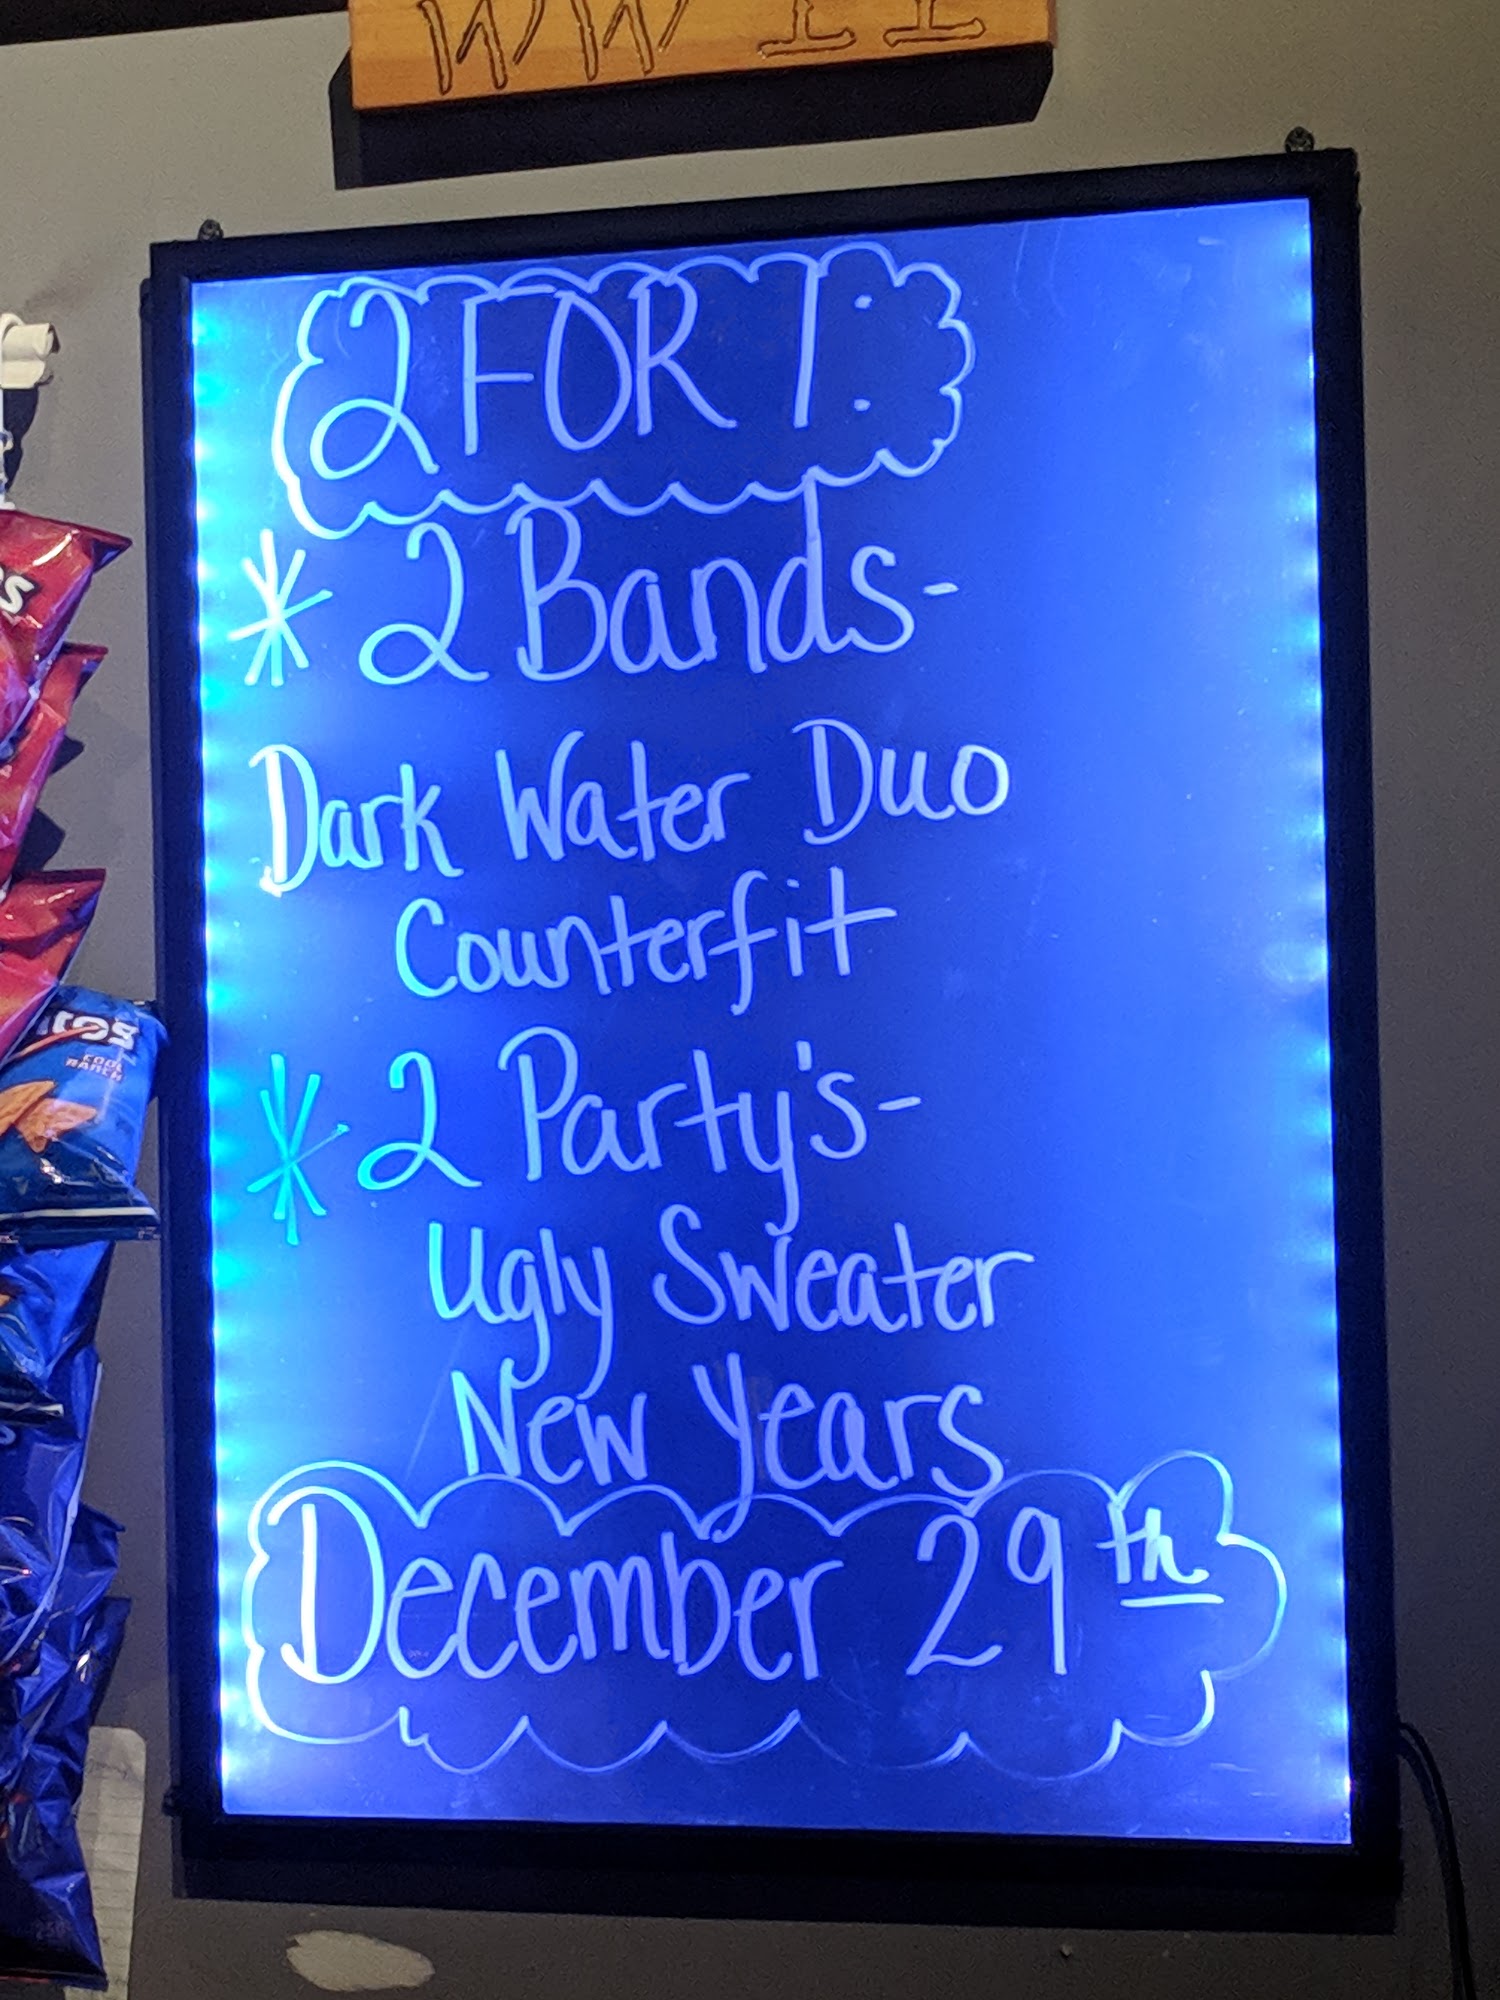 WWII
2 FOR 1:
* 2 Bands-
Dark Water Duo
Counterfit
* 2 Party's-
Ugly Sweater
New Years
December 29th
tos
COOL
RANCH